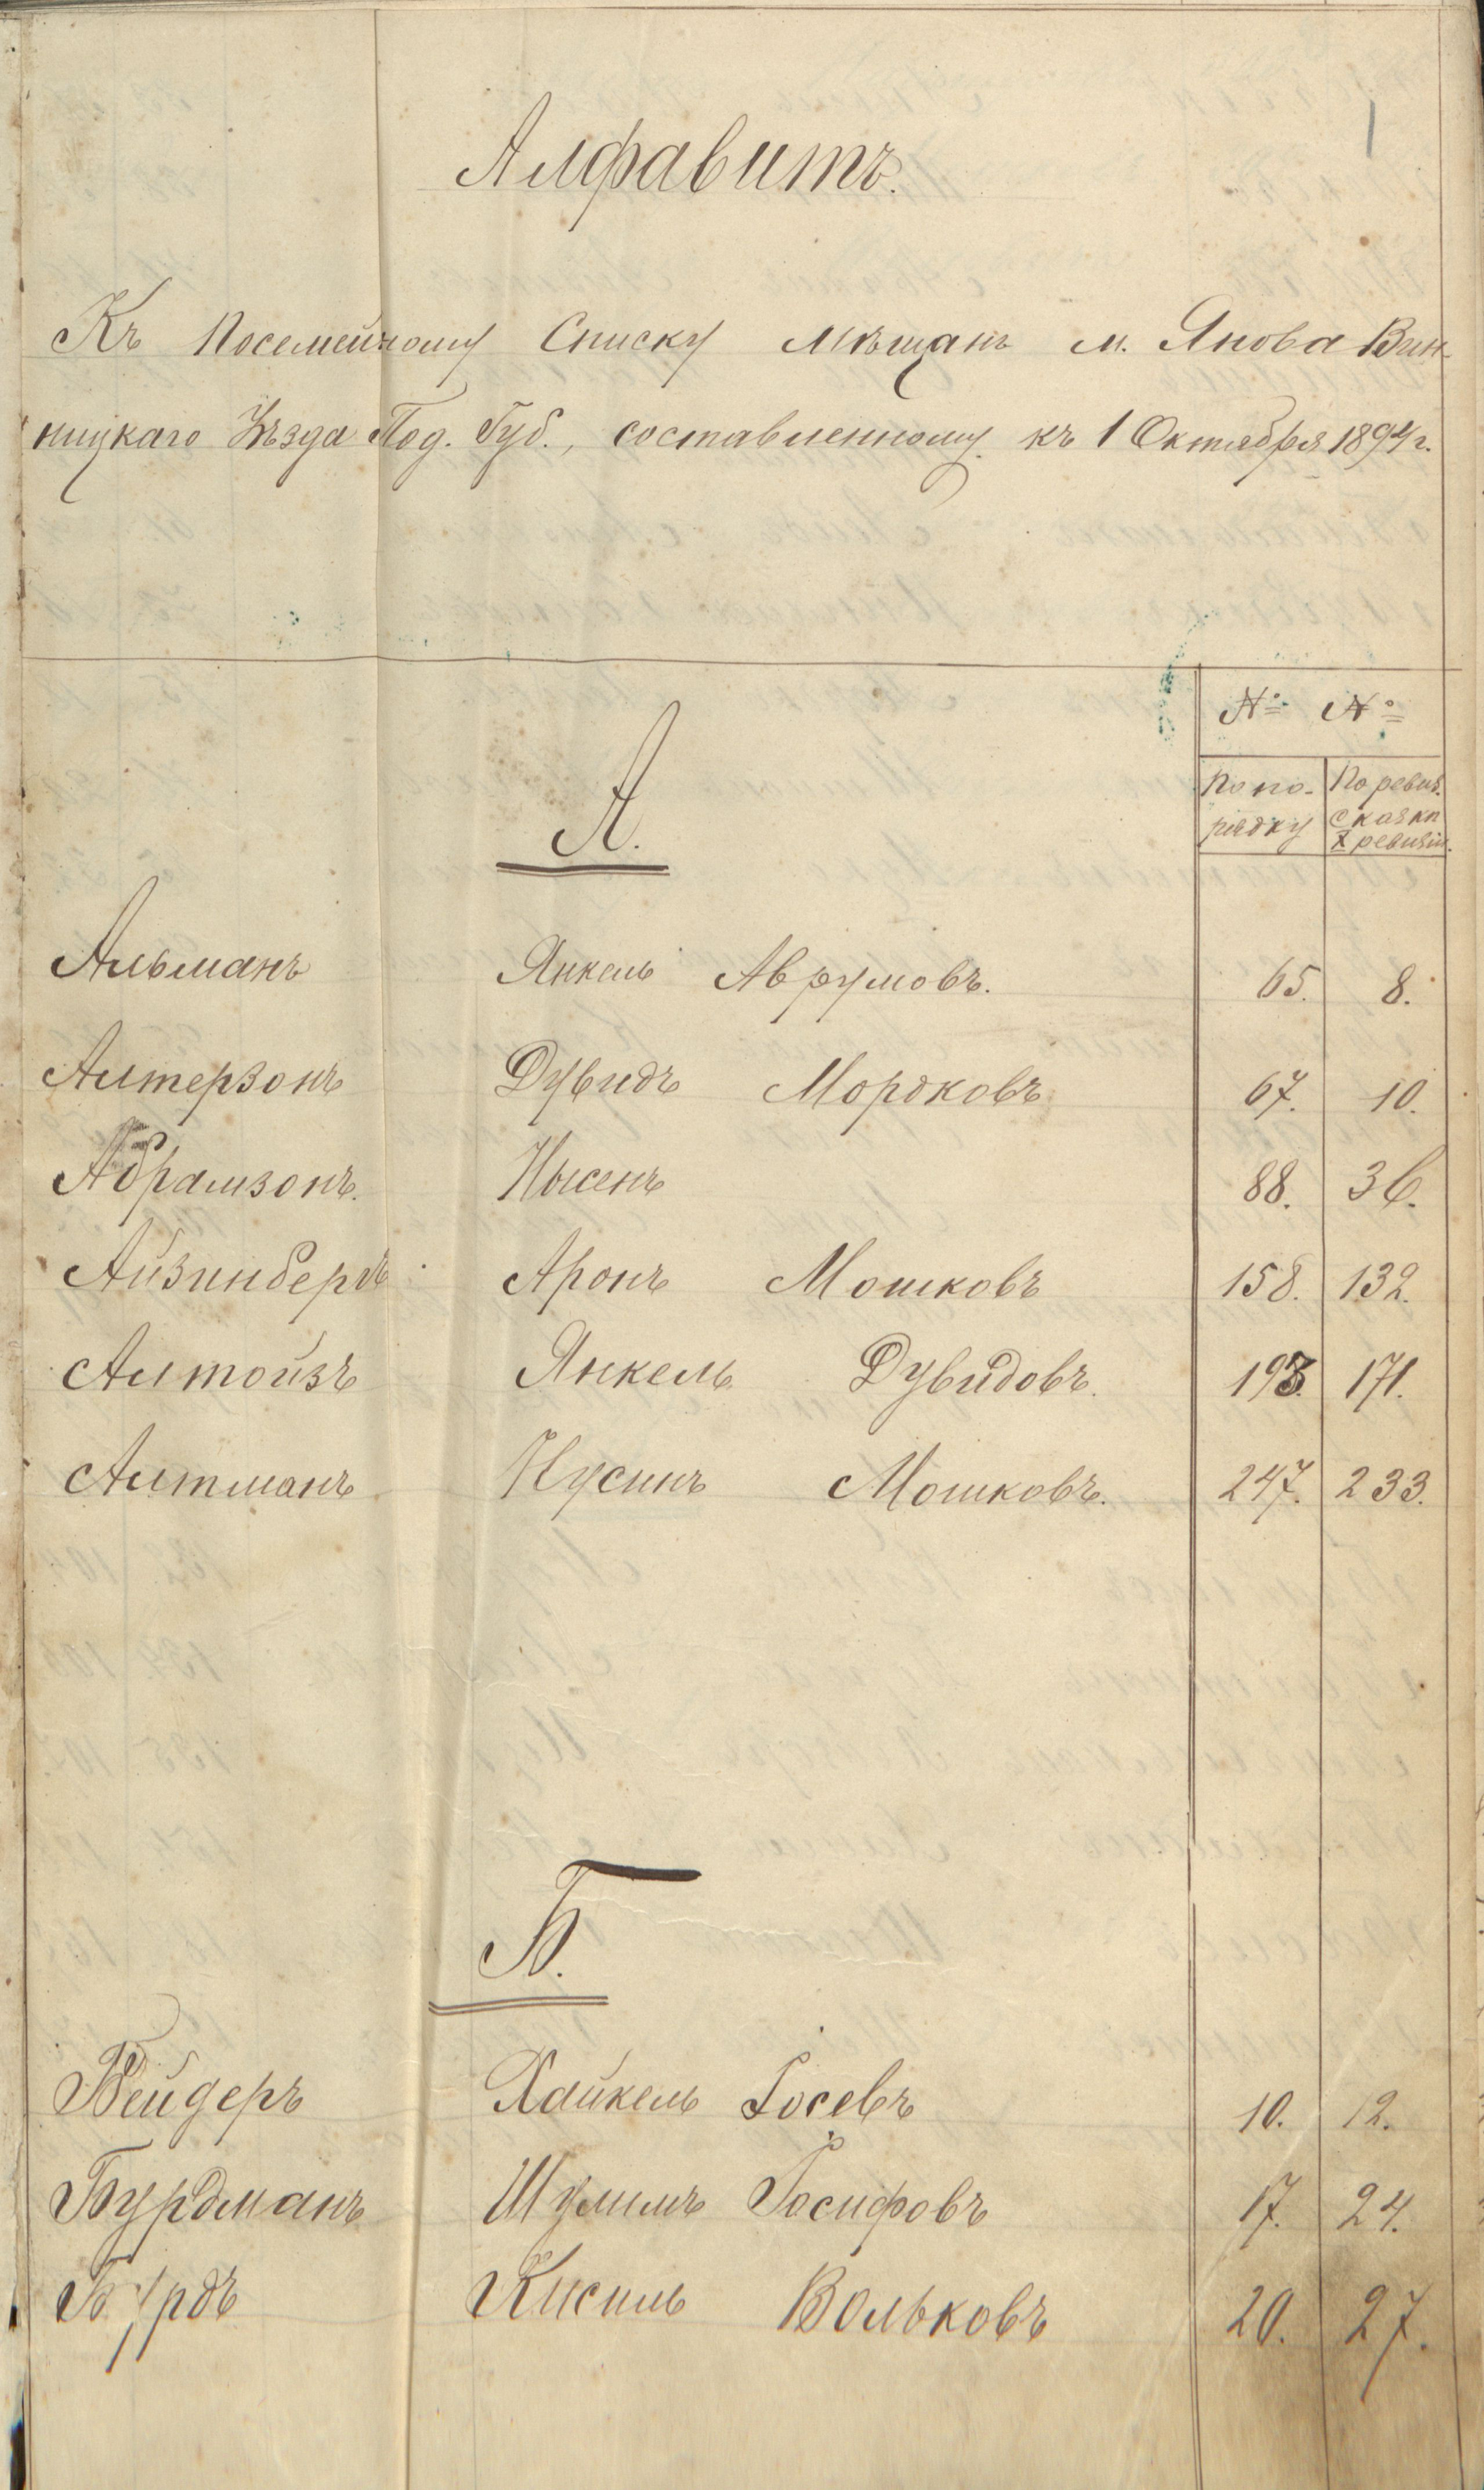 1
Алфавитъ.
Къ Посемейному Списку Мѣщанъ м. Янова Вин-
ницкаго Уѣзда Под. Губ., составленному къ 1 Октября 1894 г.
№ №
По по-
рядку
По ревиз.
сказкѣ
X ревизіи.
А.
Альманъ Янкель Аврумовъ. 65. 8.
Алтерзонъ Дувидъ Мордковъ 67. 10.
Абрамзонъ. Нысенъ 88. 36.
Айзинбергъ Аронъ Мошковъ 158. 132.
Алтойзъ Янкель Дувидовъ. 193. 171.
Алтманъ Нусинъ Мошковъ. 247. 233.
Б.
Бейдеръ Хайкель Іосевъ 10. 12.
Бурдманъ Шулимъ Іосифовъ 17. 24.
Бурдъ Кисиль Вольковъ 20. 27.